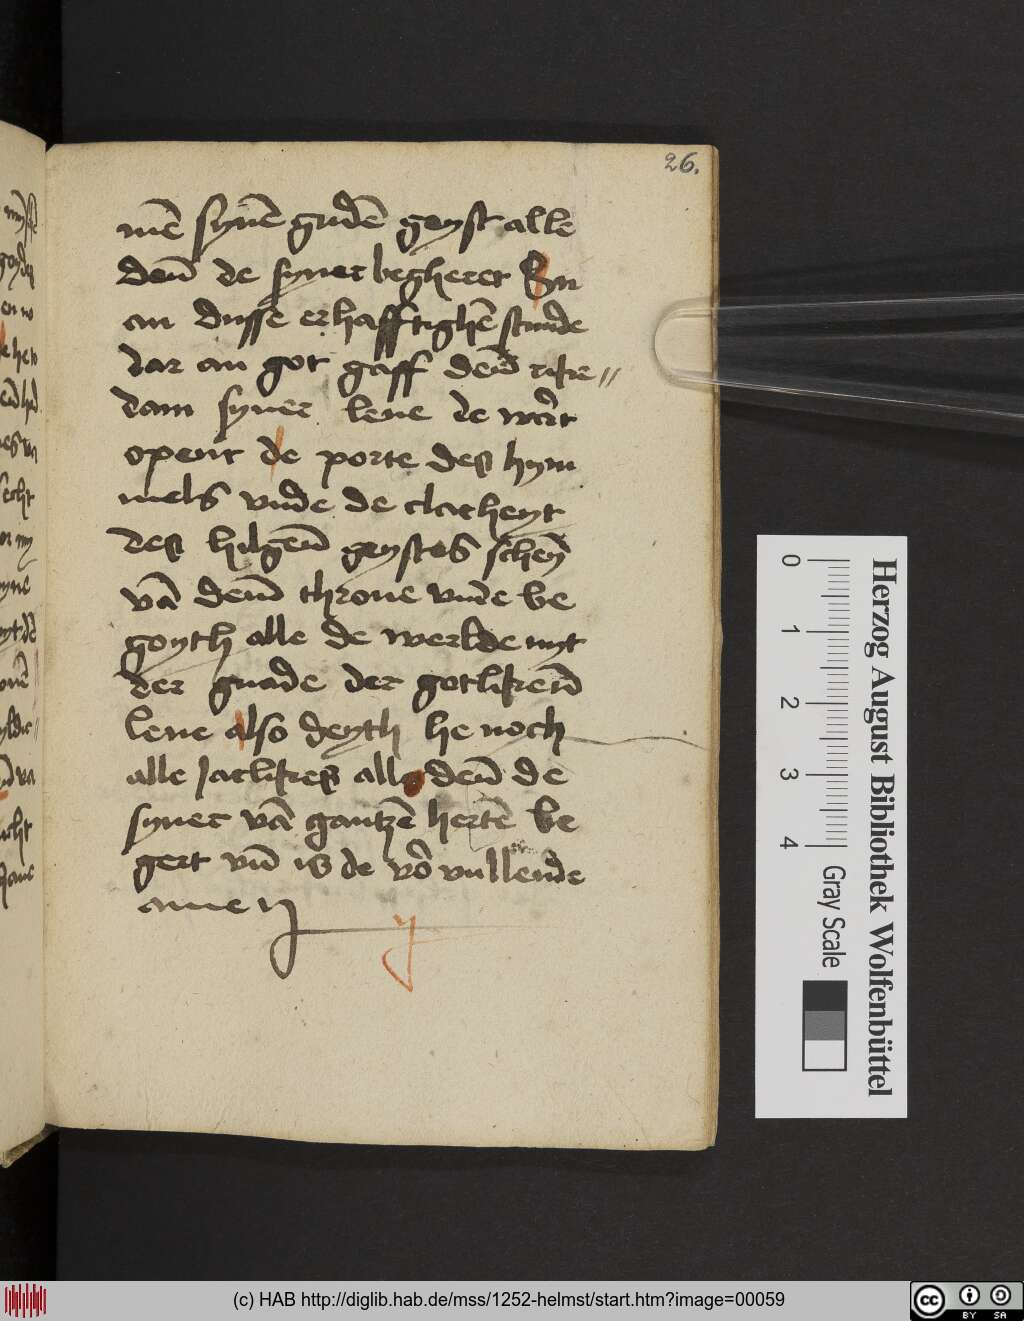 26.
mē synē gudē geyst alle
den̄ de syner begherer Syn
an dusse erhafftighē stunde
dar an got gaff den̄ rike//
dam syner leue de wart
opent de porte des hym
mels vnde de clarheyt
des hilgen̄ geystes schen̄
vā den̄ throne vnde be
goyth alle de werlde myt
der gnade der gotliken̄
leue also deyth he noch
alle jarlikes alle den̄ de
syner vā gantzē hertē be
gert vn̄ is de vō vullende
amen
Herzog August Bibliothek Wolfenbüttel
0 1 2 3 4
Gray Scale
(c) HAB http://diglib.hab.de/mss/1252-helmst/start.htm?image=00059
cc BY SA